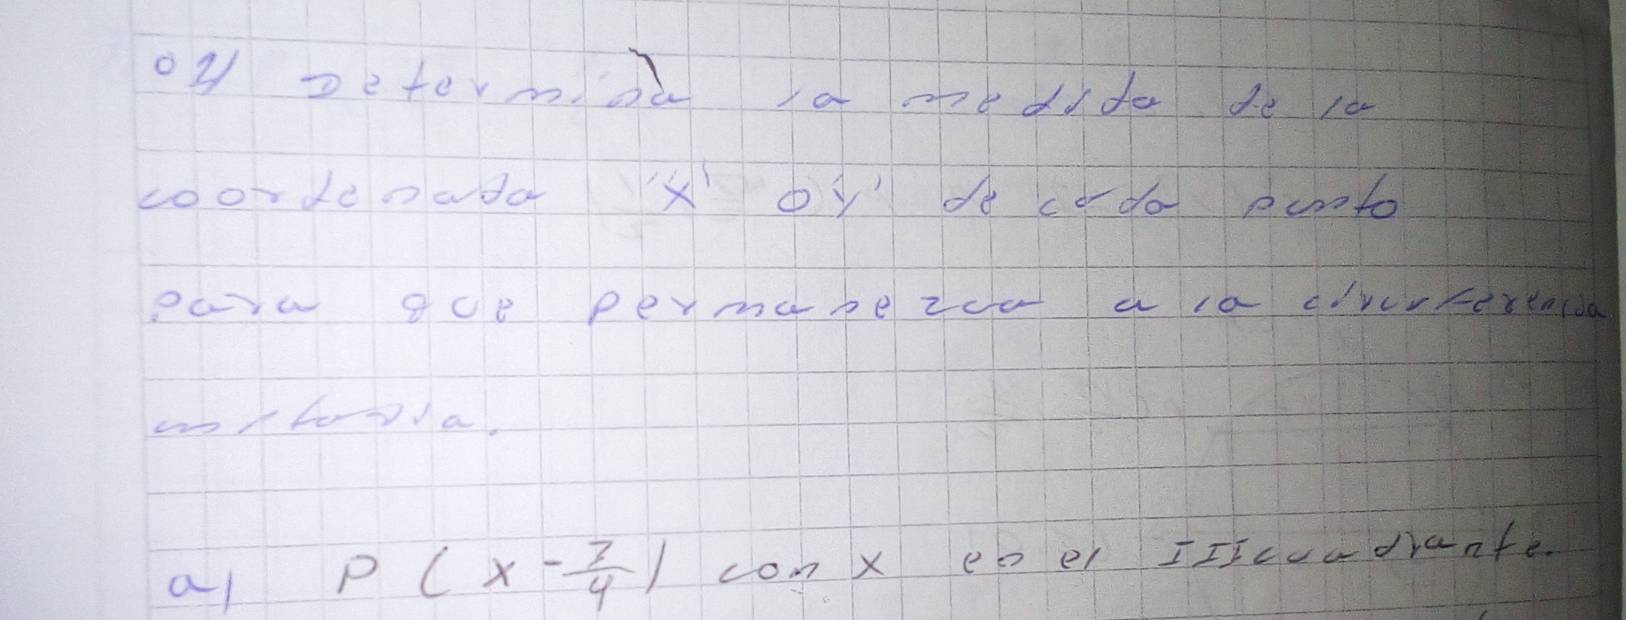 04 Determina la medida de la
coordenada "x" o "y" de cada punto
para que permanezca a la circunferencia
unitaria.
a) P(x - 3/4) con x en el III cuadrante.